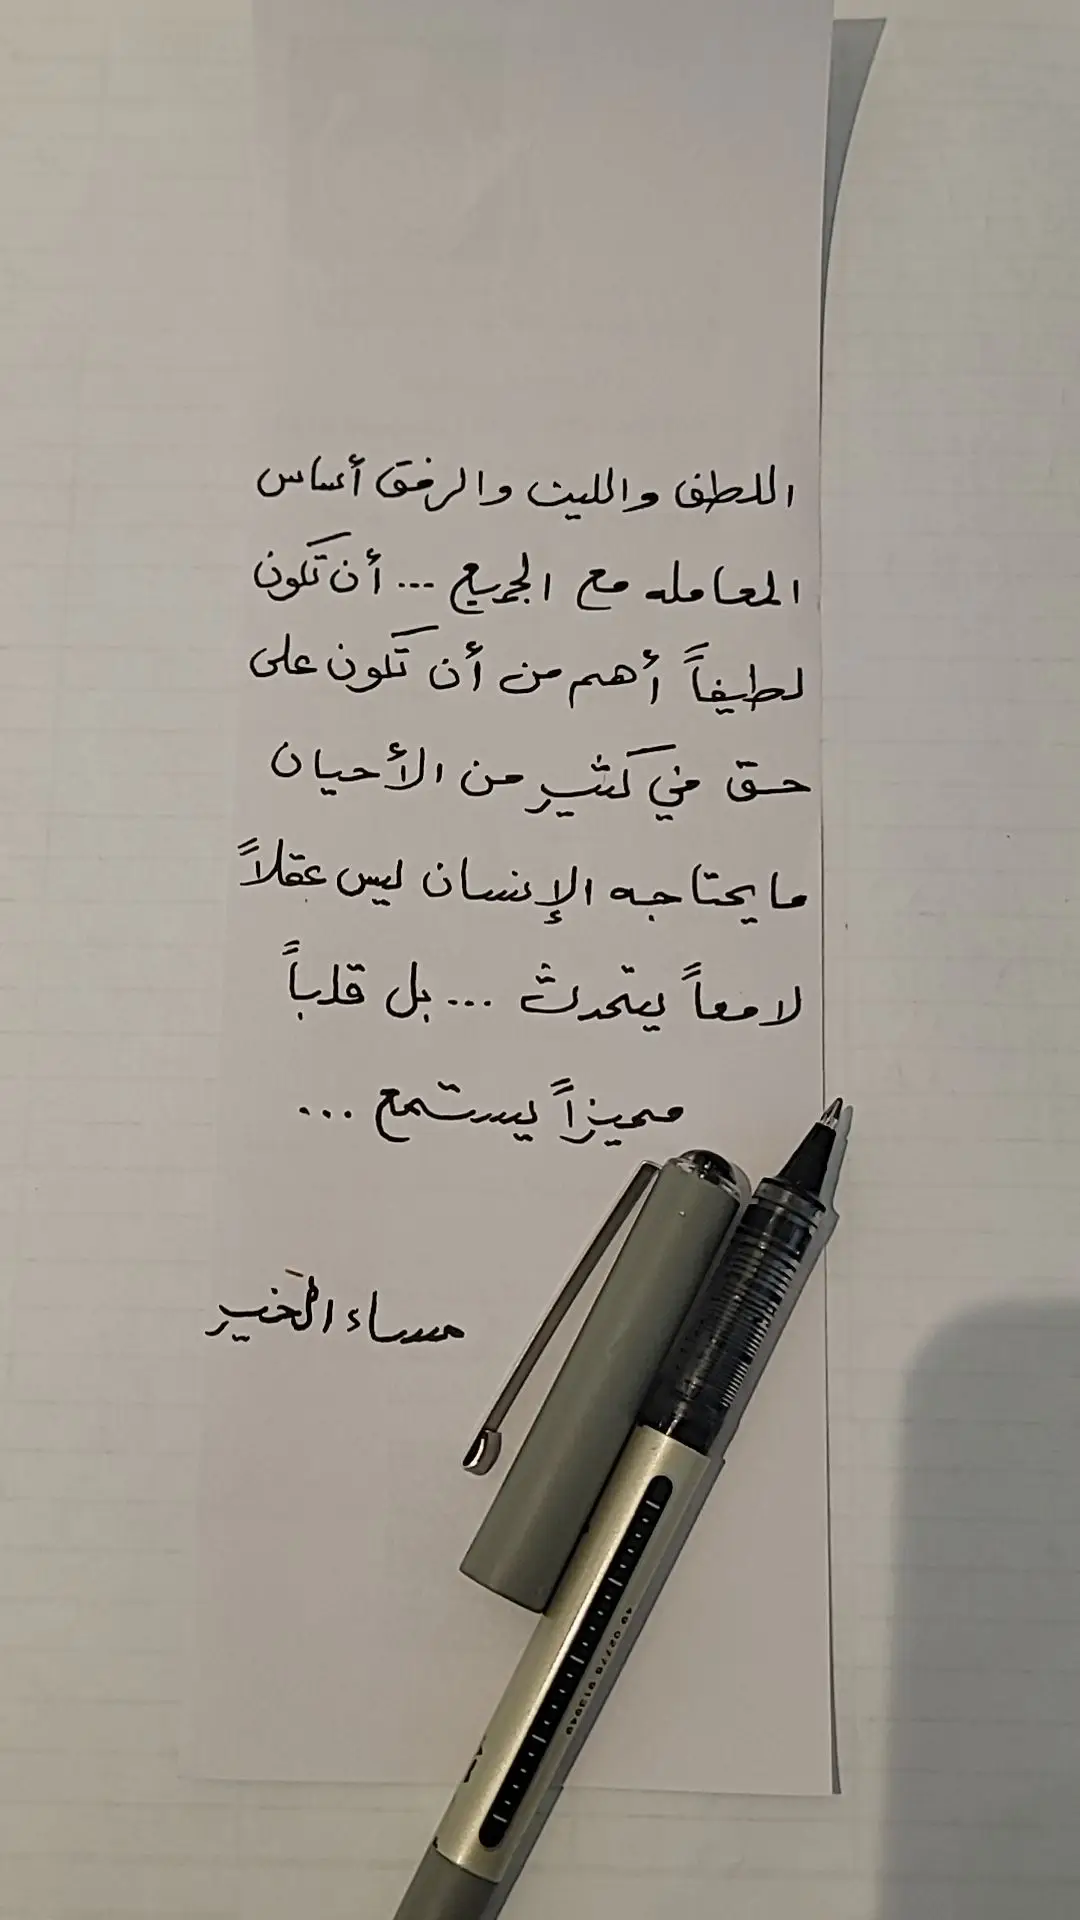 اللطف واللين والرفق أساس
المعامله مع الجميع ... أن تكون
لطيفاً أهم من أن تكون على
حق في كثير من الأحيان
ما يحتاجه الإنسان ليس عقلاً
لامعاً يتحدث ... بل قلباً
مميزاً يستمع ...
مساء الخير